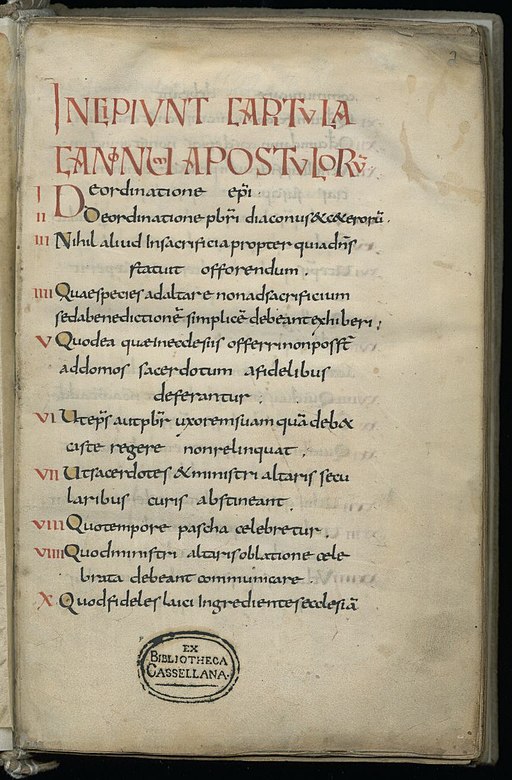 2
INCIPIUNT CARTULA
CANONUM APOSTULORŪ
I De ordinatione epi
II De ordinatione pbri diaconus & ceterorū.
III Nihil aliud In sacrificia propter quia dns
statuit offorendum.
IIII Quae species ad altare non ad sacrificium
sed ad benedictionē simplicē debeant exhiberi;
V Quod ea quae in ecclesiis offerri non poss̄t
ad domos sacerdotum a fidelibus
deferantur
VI Ut eps aut pbr uxorem suam quā deb&
caste regere non relinquat.
VII Ut sacerdotes & ministri altaris secu
laribus curis abstineant.
VIII Quo tempore pascha celebretur
VIIII Quod ministri altaris oblatione cele-
brata debeant communicare.
X Quod fideles laici Ingredientes ecclesiā
EX
BIBLIOTHECA
CASSELLANA.